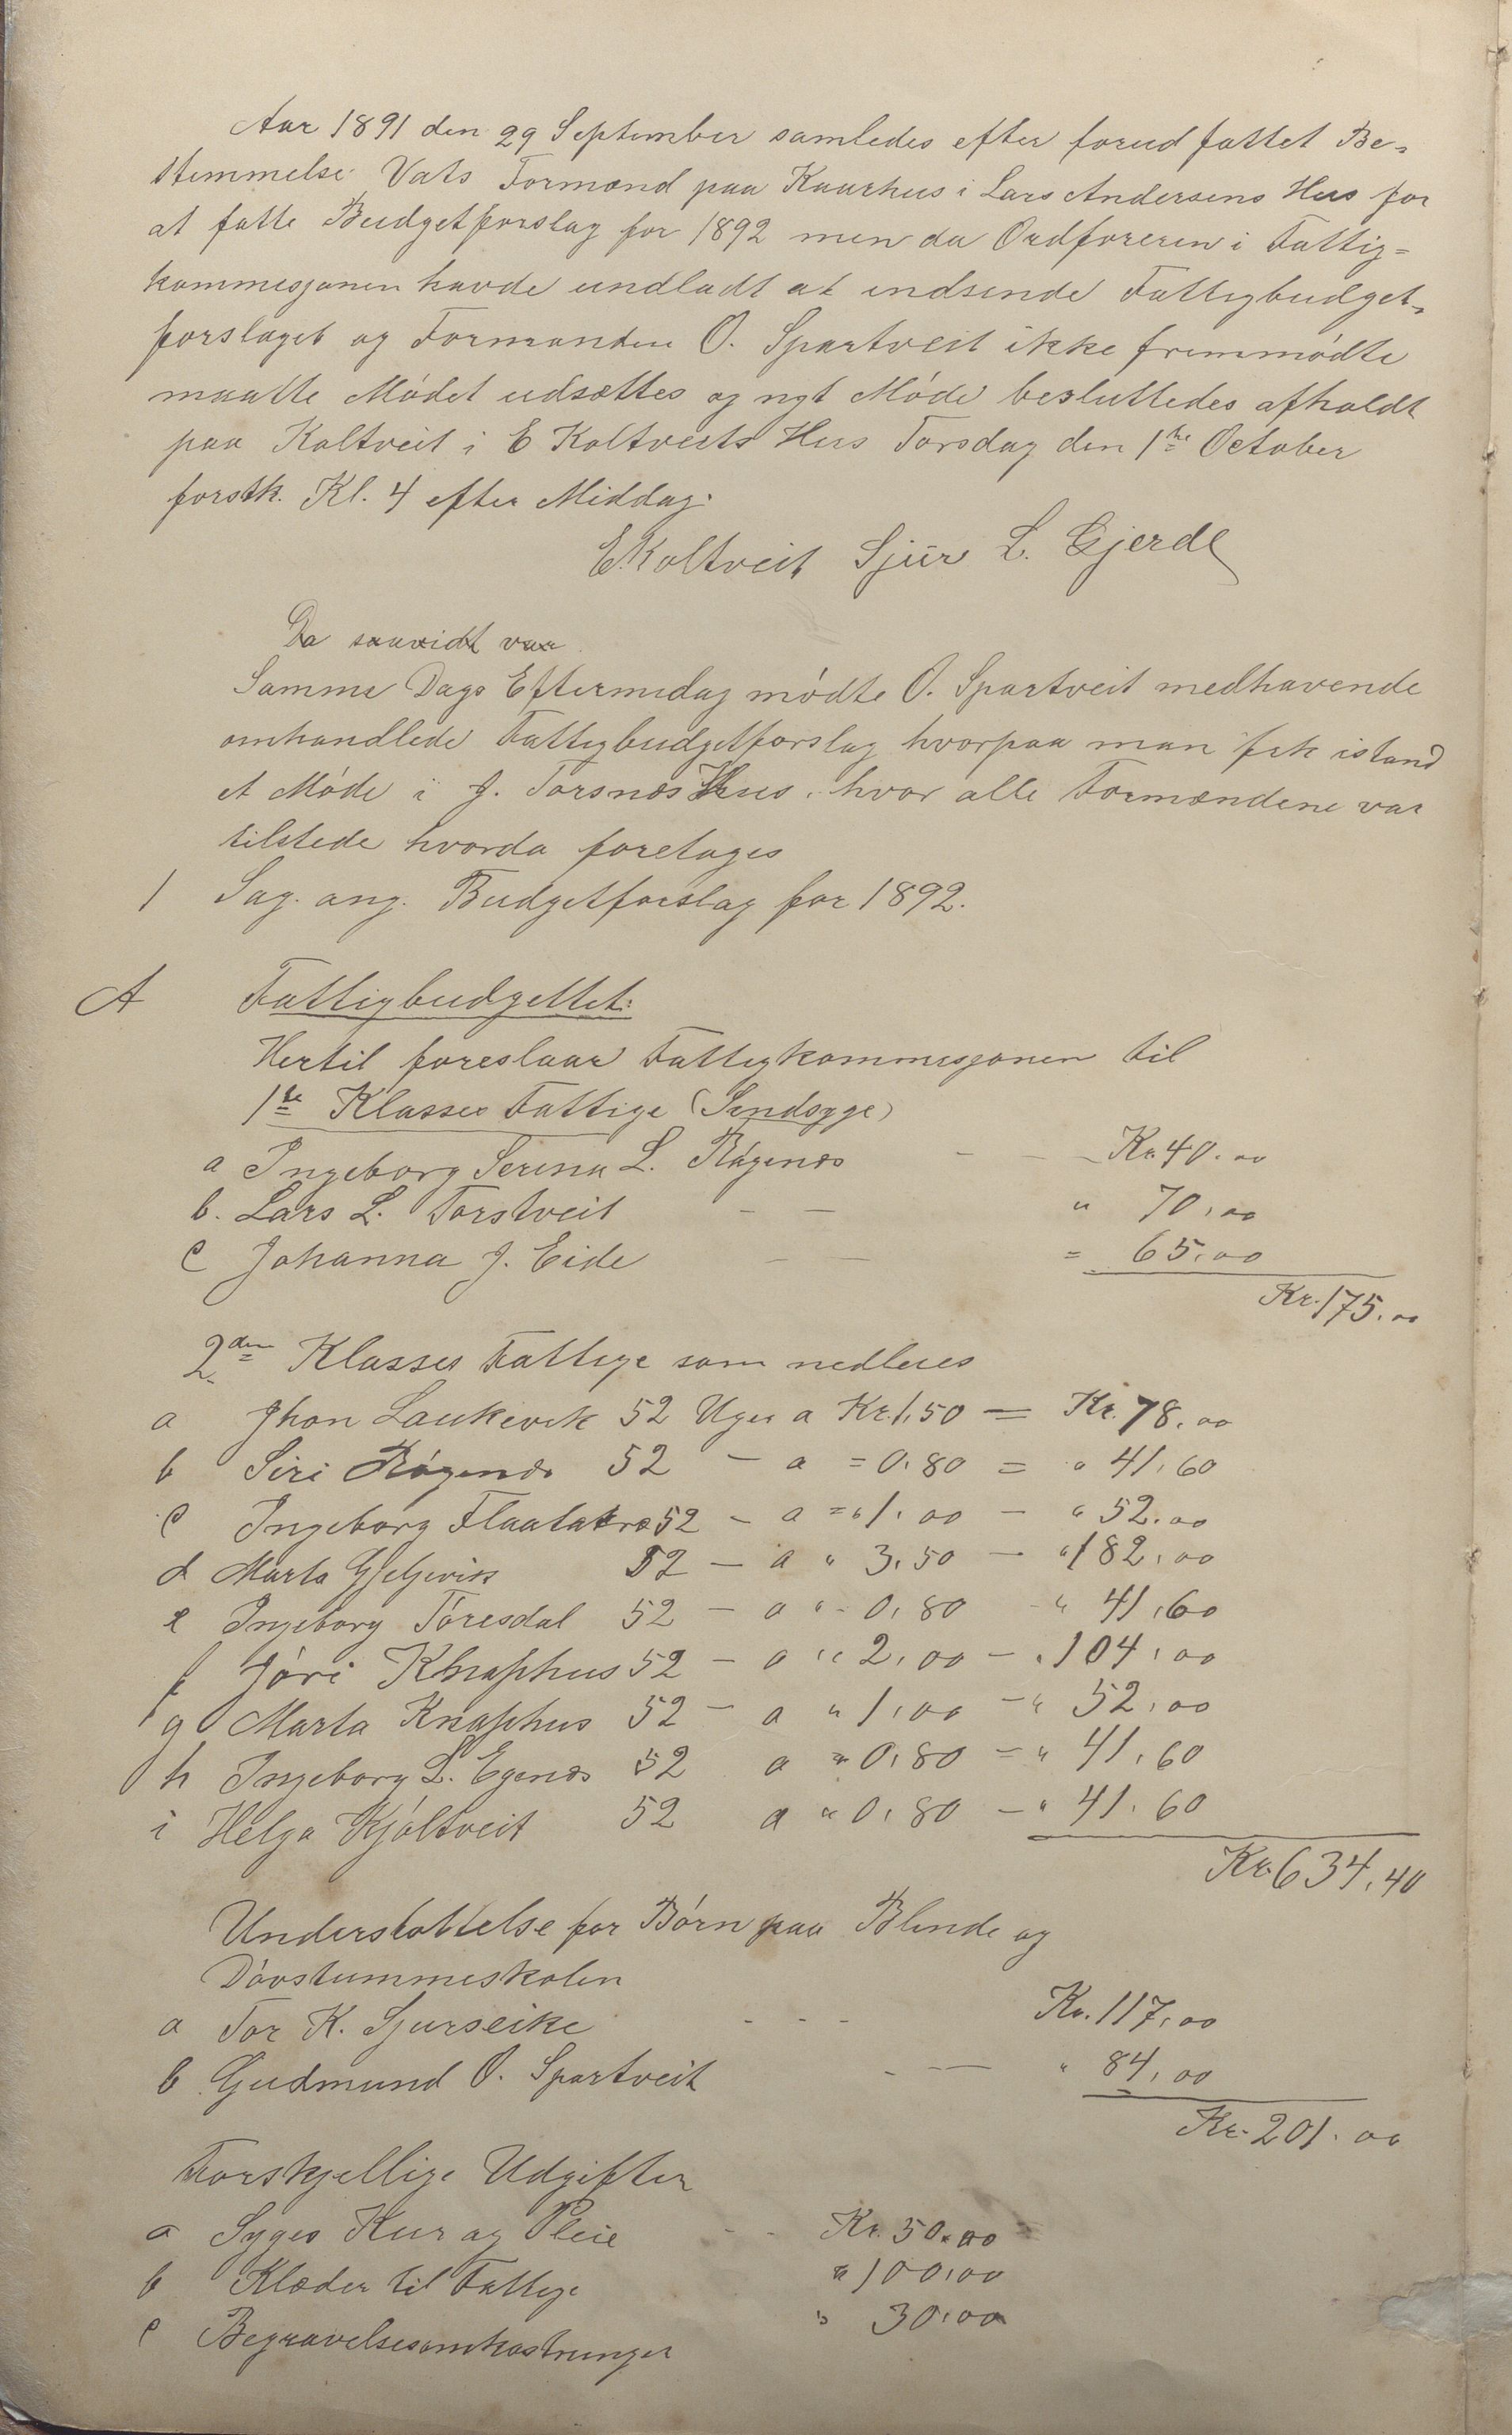 Aar 1891 den 29 September samledes efter forud fattet Be-
stemmelse Vats Formænd paa Kaarhus i Lars Andersens Hus for
at fatte Budgetforslag for 1892 men da Ordføreren i Fattig=
kommisjonen havde undladt at indsende Fattigbudget-
forslaget og Formanden O. Spartveit ikke fremmødte
maatte Mødet udsættes og nyt Møde besluttedes afholdt
paa Koltveit i E Koltveits Hus Torsdag den 1ste October
forstk. Kl. 4 efter Middag.
E. Koltveit Sjur L. Gjerde
Da saavidt var
Samme Dags Eftermidag mødte O. Spartveit medhavende
omhandlede Fattigbudgetforslag hvorpaa man fik istand
et Møde i J. Torsnæs Hus, hvor alle Formændene var
tilstede hvorda foretages
1 Sag. ang. Budgetforslag for 1892.
A Fattigbudgettet:
Hertil foreslaar Fattigkommisjonen til
1ste Klasses Fattige (Sindsyge)
a Ingeborg Serina L. Røgenæs - - - Kr. 40.00
b. Lars L. Torstveit - - " 70,00
c Johanna J. Eide - - = 65,00
Kr. 175.00
2den Klasses Fattige som nedleies
a Jhon Laukevik 52 Uger a Kr. 1,50 = Kr. 78.00
b Siri Røgenæs 52 - a = 0,80 = " 41,60
c Ingeborg Flaatakre 52 - a = " 1.00 - " 52.00
d Marta Gjeljevik 52 - a " 3,50 - " 182,00
e Ingeborg Tøresdal 52 - a " - 0,80 - " 41,60
f Jøri Knaphus 52 - a " 2,00 - " 104,00
g Marta Knaphus 52 - a " 1,00 - " 52,00
h Ingeborg L. Egenæs 52 a " 0,80 = " 41,60
i Helga Kjøltveit 52 a " 0,80 - " 41.60
Kr. 634,40
Understøttelse for Børn paa Blinde og
Døvstummeskolen
a Tor K. Sjurseike - - - Kr. 117,00
b Gudmund O. Spartveit - - " 84,00
Kr. 201.00
Forskjellige Udgifter
a Syges Kur og Pleie - - Kr. 50.00
b Klæder til Fattige " 100,00
c Begravelsesomkostninger " 30,00